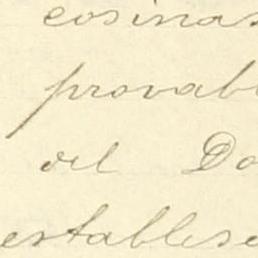 cosinas
provabl
del Do
establese